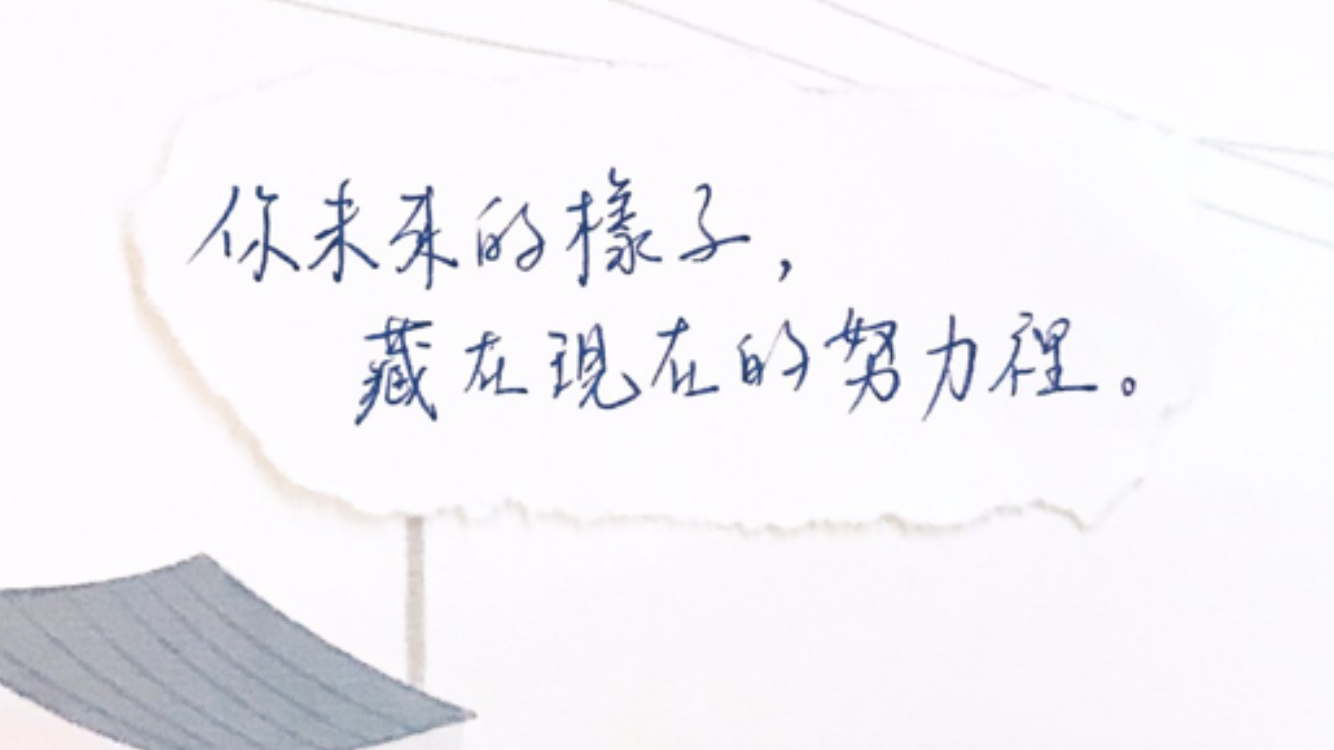 你未来的樣子，
藏在現在的努力裡。